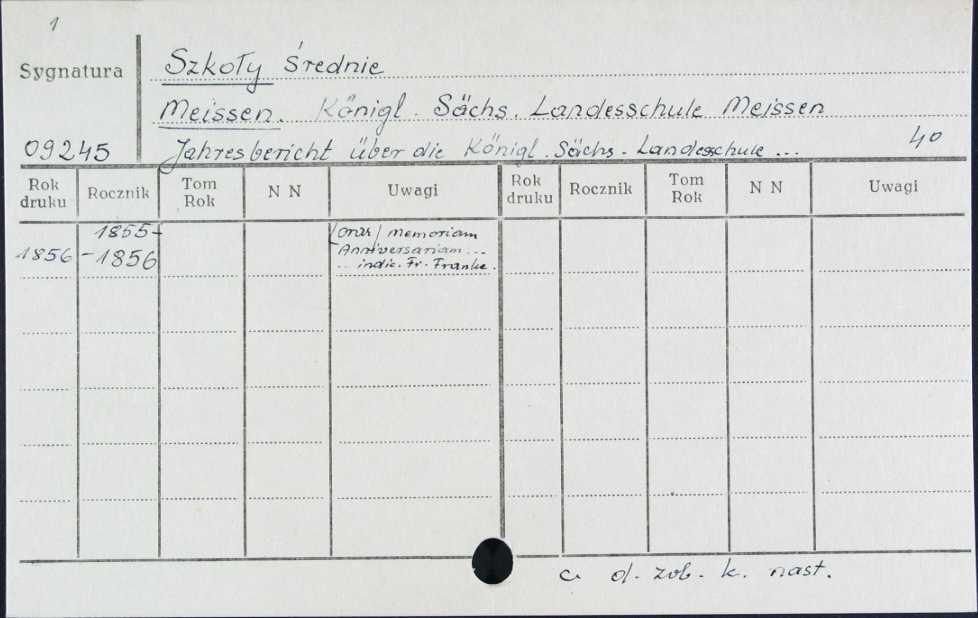 1
Sygnatura
Szkoły średnie
Meissen. Königl. Sächs. Landesschule Meissen
09245 Jahresbericht über die Königl. Sächs. Landesschule ... 40
Rok druku Rocznik Tom Rok N N Uwagi Rok druku Rocznik Tom Rok N N Uwagi
1856 1855-
-1856
/oraz/ memoriam
Anniversariam ...
... indic. Fr. Franke.
c. d. zob. k. nast.